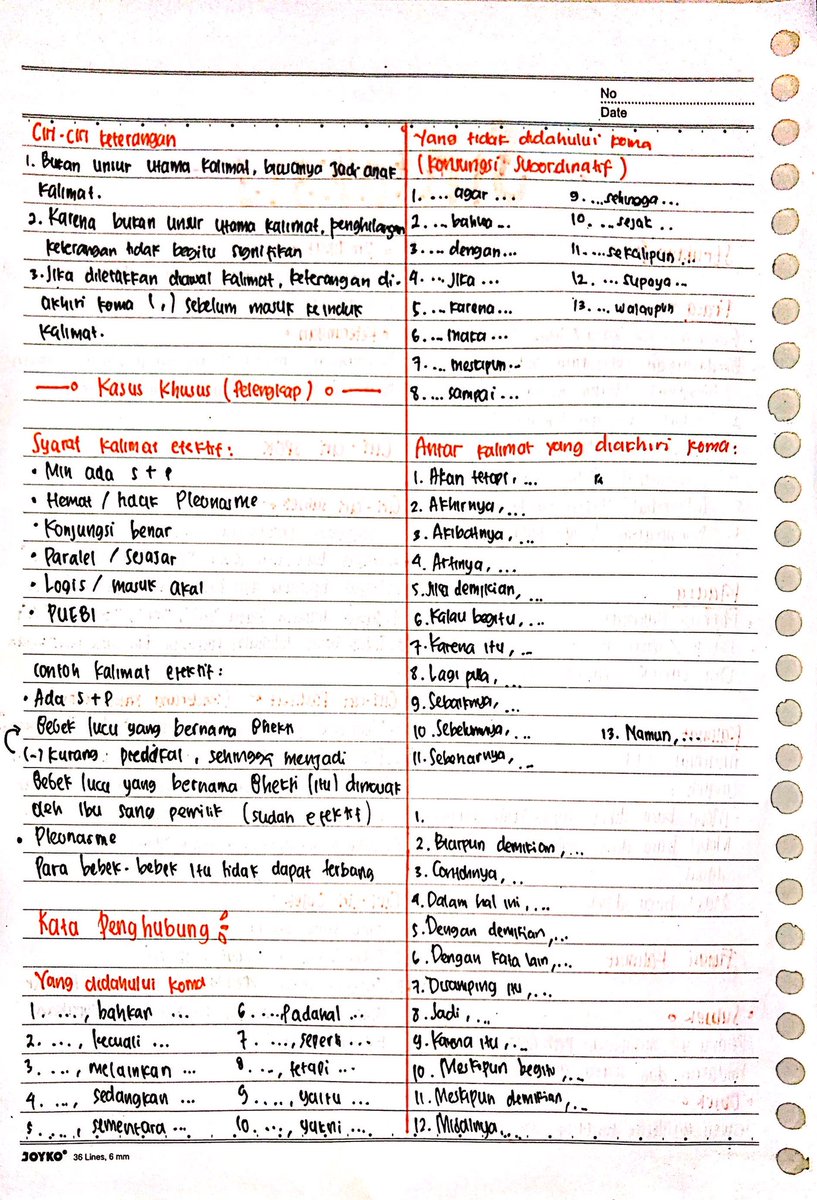 No
Date
Ciri-ciri keterangan
1. Bukan unsur utama kalimat, biasanya jadi anak
kalimat.
2. Karena bukan unsur utama kalimat, penghilangan
keterangan tidak begitu signifikan
3. Jika diletakkan diawal kalimat, keterangan di-
akhiri koma (,) sebelum masuk ke induk
kalimat.
Kasus Khusus (Pelengkap)
Syarat kalimat efektif:
• Min ada S + P
• Hemat / tidak Pleonasme
• Konjungsi benar
• Paralel / sejajar
• Logis / masuk akal
• PUEBI
contoh kalimat efektif:
• Ada S + P
Bebek lucu yang bernama
(-) kurang predikat, sehingga menjadi
Bebek lucu yang bernama (itu) dirawat
oleh ibu sang pemilik (sudah efektif)
• Pleonasme
Para bebek-bebek itu tidak dapat terbang
Kata Penghubung
Yang didahului koma
1. ..., bahkan ...
2. ..., kecuali ...
3. ..., melainkan ...
4. ..., sedangkan ...
5. ..., sementara ...
6. ....padahal ...
7. ..., seperti ...
8. ..., tetapi ...
9. ...., yaitu ...
10. ..., yakni ...
Yang tidak didahului koma
(Konjungsi Subordinatif)
1. ... agar ...
2. ... bahwa ...
3. ... dengan ...
4. ... jika ...
5. ... karena ...
6. ... maka ...
7. ... meskipun ...
8. ... sampai ...
9. ...sehingga ...
10. ...sejak ...
11. ...sekalipun ...
12. ... supaya ...
13. ... walaupun
Antar kalimat yang diakhiri koma:
1. Akan tetapi, ...
2. Akhirnya, ...
3. Akibatnya, ...
4. Artinya, ...
5. Jika demikian, ...
6. Kalau begitu, ...
7. Karena itu, ...
8. Lagi pula, ...
9. Sebaiknya, ...
10. Sebelumnya, ...
11. Sebenarnya, ...
13. Namun, ...
1.
2. Biarpun demikian, ...
3. Contohnya, ...
4. Dalam hal ini, ...
5. Dengan demikian, ...
6. Dengan kata lain, ...
7. Disamping itu, ...
8. Jadi, ...
9. Karena itu, ...
10. Meskipun begitu, ...
11. Meskipun demikian, ...
12. Misalnya, ...
JOYKO 36 Lines, 6 mm